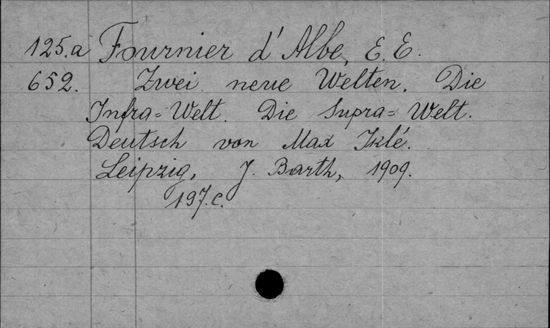 125.a Fournier d'Albe, E. E.
652. Zwei neue Welten. Die
Infra=Welt. Die Supra=Welt.
Deutsch von Max Iklé.
Leipzig, J. Barth, 1909.
197.c.